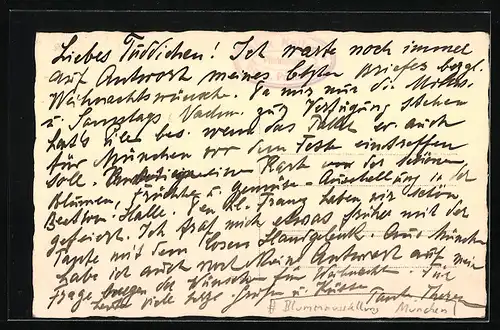 Liebes Tüddichen! Ich warte noch immer
auf Antwort meines letzten Briefes bezgl.
Weihnachtswünsche. Da mir nur die Mittw.
u. Samstag Nachm. zur Verfügung stehen
hat's Eile bes. wenn das Paket er auch
für München vor dem Feste eintreffen
soll. eine Karte von der schönen
Blumen, Früchte u. Gemüse-Ausstellung in der
Beethov. Halle. Den hl. Franz haben wir schön
gefeiert. Ich traf mich etwas früher mit der
Tante mit dem Handgelenk. Aus München
habe ich auch noch keine Antwort auf mein
Frage wegen der Wünsche für Weihnacht. Für
heute viele herzl. Grüße u. Küsse Tante
Blumenausstellung München